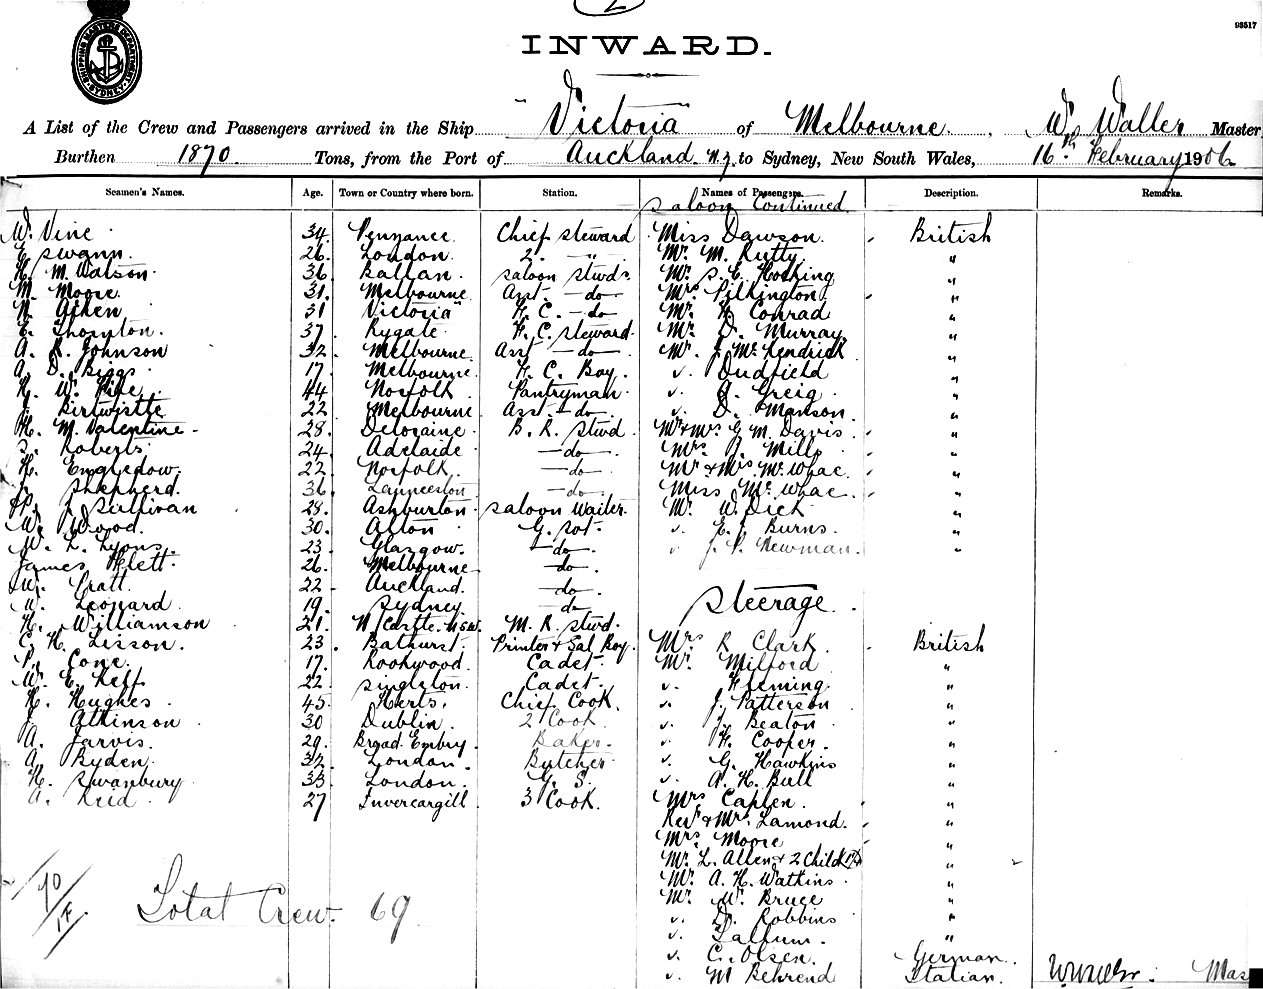 2
93517
SHIPPING MASTERS DEPARTMENT SYDNEY
INWARD.
A List of the Crew and Passengers arrived in the Ship "Victoria" of Melbourne, W. Waller Master
Burthen 1870 Tons, from the Port of Auckland N.Z. to Sydney, New South Wales, 16th February 1906
Seamen's Names. Age. Town or Country where born. Station. Names of Passengers. Description. Remarks.
Saloon Continued
W. Vine 34 Penzance Chief Steward Miss Dawson British
E. Swann 26 London 2 " Mr. M. Rutty "
H. M. Watson 36 Ballan Saloon Stwds Mr. S. E. Hosking "
M. Moore 31 Melbourne Asst. do Mrs. Pilkington "
N. Aiken 31 Victoria F. C. do Mr. H. Conrad "
E. Thornton 37 Rygate F. C. Steward Mr. D. Murray "
A. R. Johnson 32 Melbourne Asst do Mr. J. McKendrick "
A. D. Biggs 17 Melbourne F. C. Boy. v. Dudfield "
H. W. Pike 44 Norfolk Pantryman v. A. Greig "
J. Birtwistle 22 Melbourne Asst. do v. D. Manson "
H. M. Valentine 28 Deloraine B. R. Stwd Mr & Mrs G. M. Davis "
S. Roberts 24 Adelaide do Mrs. J. Mills "
H. Engledow 22 Norfolk do Mr & Mrs. McWhae "
Shepherd 36 Launceston do Miss McWhae "
J. Sullivan 28 Ashburton Saloon Waiter Mr. W. Dick "
W. Wood 30 Alton G. Sot. v. E. J. Burns "
W. L. Lyons 23 Glasgow do v. J. P. Newman "
James Plett 26 Melbourne do
W. Gratt 22 Auckland do
W. Leonard 19 Sydney do Steerage
H. Williamson 21 N Castle N.S.W. M. R. Stwd.
C. H. Lisson 23 Bathurst Printer & Sal Boy Mrs R Clark British
P. Cone 17 Rookwood Cadet Mr. Milford "
W. E. Kelf 22 Singleton Cadet v. Fleming "
H. Hughes 45 Herts. Chief Cook. v. J. Patterson "
J. Atkinson 30 Dublin 2 Cook v. J. Beaton "
A. Jarvis. 29 Broad Embry Baker v. H. Cooper "
A. Byden 32 London Butcher v. G. Hawkins "
H. Swanbury 33 London G. S. v. A. H. Bull "
A. Reid 27 Invercargill 3 Cook. Mrs Caplen "
Revd & Mrs. Lamond "
Mrs. Moore "
Mr. L. Allen & 2 Child "
Mr. A. H. Watkins "
Total Crew 69
Mr. W. Bruce "
v. D. Robbins "
v. Lallum "
v. C. Olsen German
v. M Behrend Italian Mas